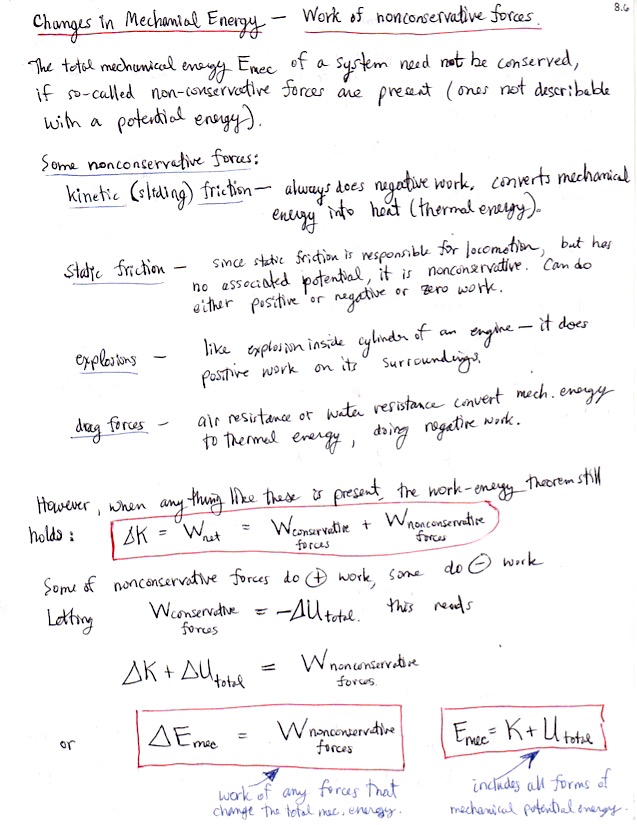 8.6
Changes in Mechanial Energy — Work of nonconservative forces.
The total mechanical energy Emec of a system need not be conserved,
if so-called non-conservative forces are present (ones not describable
with a potential energy).
Some nonconservative forces:
kinetic (sliding) friction — always does negative work, converts mechanical
energy into heat (thermal energy).
static friction — since static friction is responsible for locomotion, but has
no associated potential, it is nonconservative. Can do
either positive or negative or zero work.
explosions — like explosion inside cylinder of an engine — it does
positive work on its surroundings.
drag forces — air resistance or water resistance convert mech. energy
to thermal energy, doing negative work.
However, when anything like these is present, the work-energy theorem still
holds: ΔK = Wnet = Wconservative forces + Wnonconservative forces
Some of nonconservative forces do ⊕ work, some do ⊖ work
Letting Wconservative forces = -ΔUtotal. this reads
ΔK + ΔUtotal = Wnonconservative forces.
or ΔEmec = Wnonconservative forces Emec = K + Utotal
work of any forces that
change the total mec. energy.
includes all forms of
mechanical potential energy.